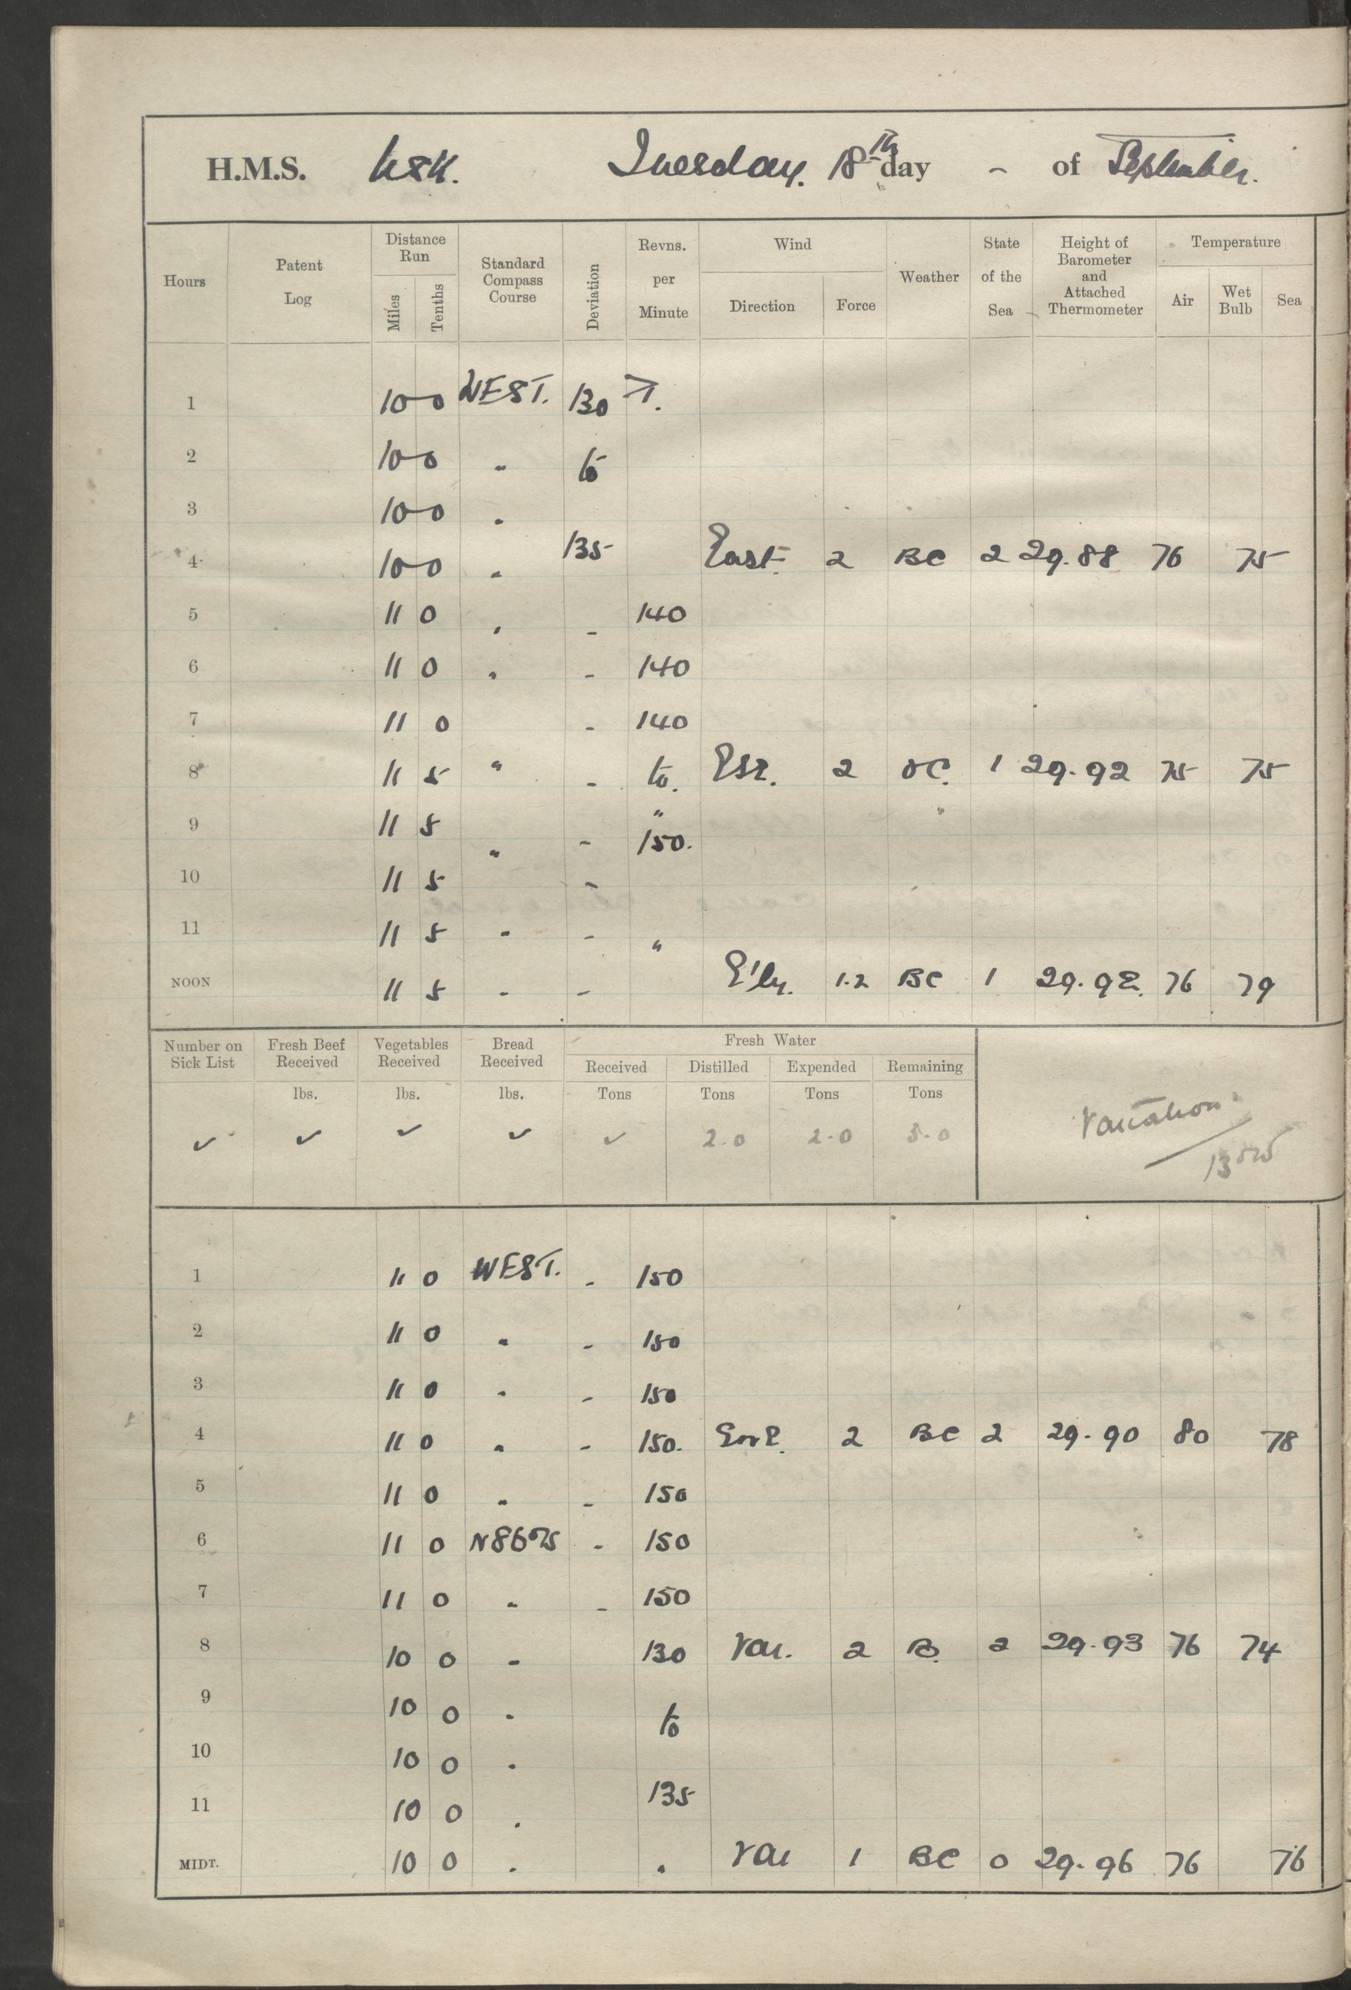 H.M.S. Usk. Tuesday. 18th day - of September.
Hours Patent Log Distance Run Miles Tenths Standard Compass Course Deviation Revns. per Minute Wind Direction Force Weather State of the Sea Height of Barometer and Attached Thermometer Temperature Air Wet Bulb Sea
1 10 0 WEST. 130
2 10 0 " to
3 10 0 "
4 10 0 " 135 East 2 BC 2 29.88 76 75
5 11 0 " - 140
6 11 0 " - 140
7 11 0 - 140
8 11 5 " - to. ESE. 2 OC. 1 29.92 75 75
9 11 5 " - " 150.
10 11 5 -
11 11 5 " - "
NOON 11 5 - - E'ly. 1.2 BC 1 29.92. 76 79
Number on Sick List Fresh Beef Received Vegetables Received Bread Received Fresh Water
Received Distilled Expended Remaining
lbs. lbs. lbs. Tons Tons Tons Tons
✓ ✓ ✓ ✓ ✓ 2.0 2.0 5.0
Variation.
1 11 0 WEST. - 150
2 11 0 " - 150
3 11 0 " - 150
4 11 0 " - 150. 2 BC 2 29.90 80 78
5 11 0 " - 150
6 11 0 N86°W - 150
7 11 0 " - 150
8 10 0 " 130 Var. 2 B. 2 29.93 76 74
9 10 0 " to
10 10 0 "
11 10 0 " 135
MIDT. 10 0 " " Var 1 BC 0 29.96 76 76